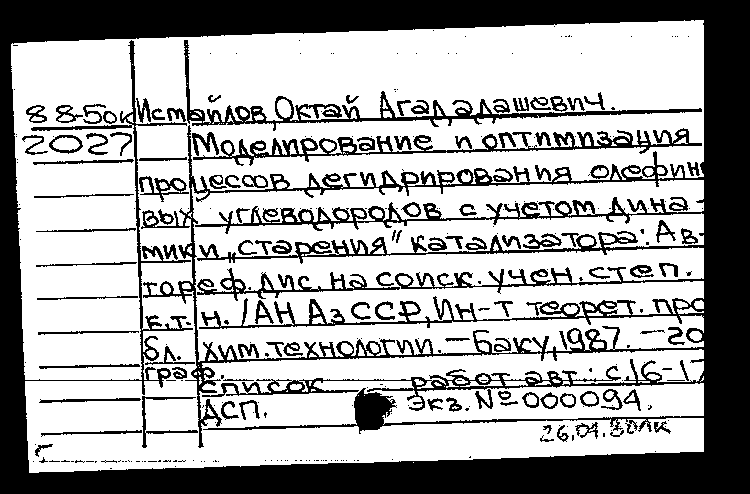 88-5ок Исмайлов, Октай Агададашевич.
2027 Моделирование и оптимизация
процессов дегидрирования олефин
вых углеводородов с учетом дина-
мики „старения" катализатора: Ав-
тореф. дис. на соиск. учен. степ.
к.т.н. /АН АзССР, Ин-т теорет. про
бл. хим. технологии. — Баку, 1987. — 20
граф.
список работ авт.: с. 16-17
ДСП. Экз. № 000094.